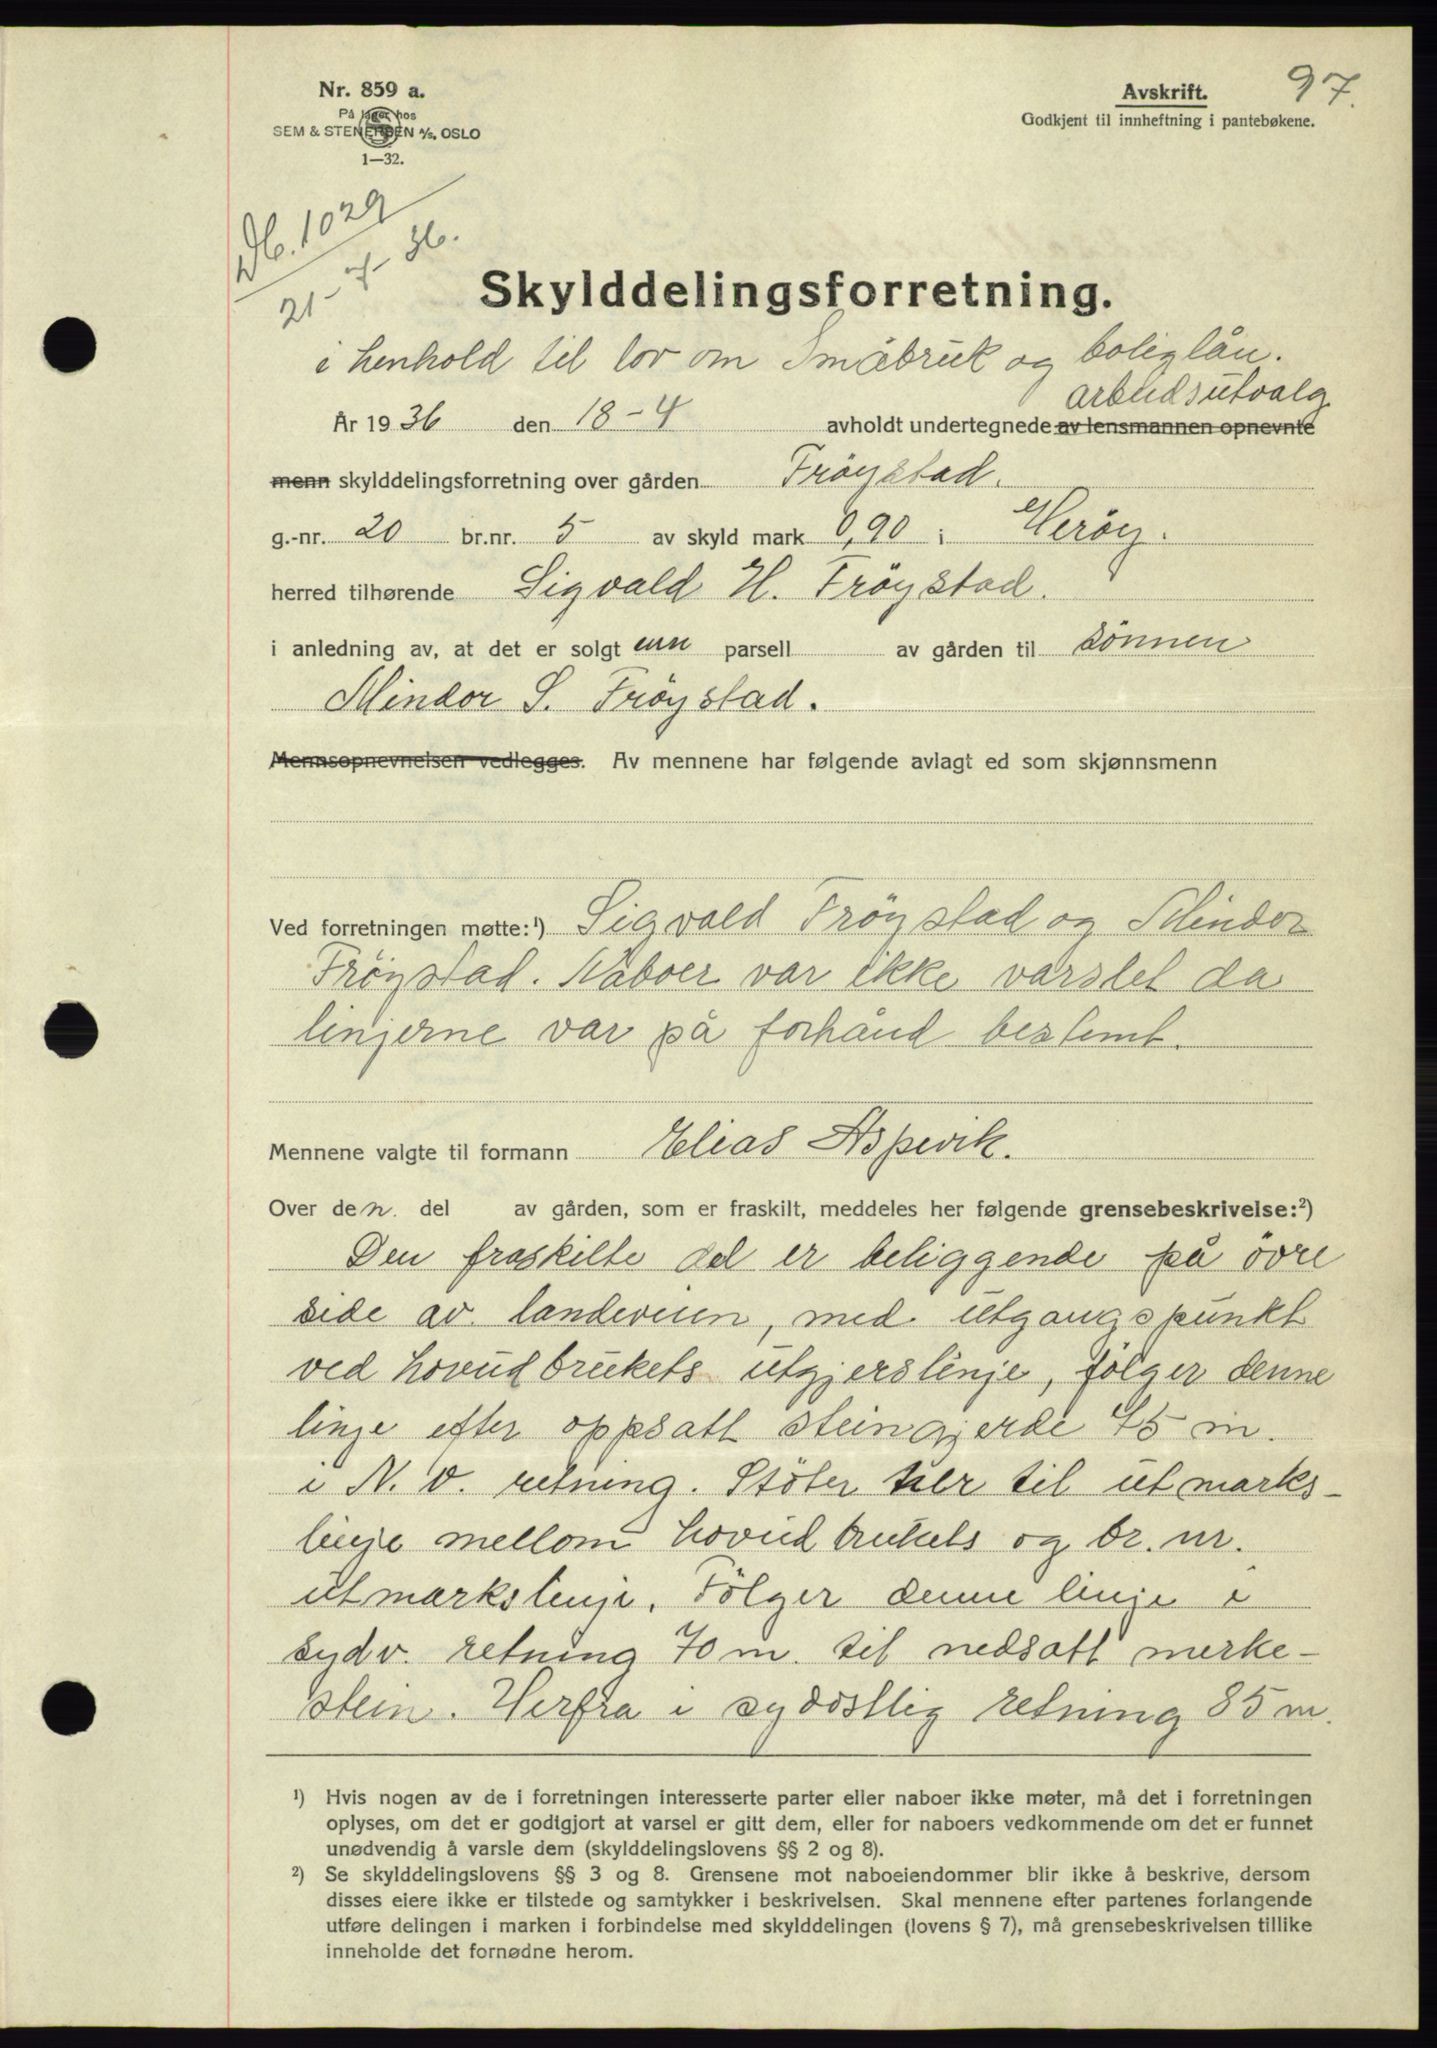 Nr. 859 a.
På lager hos
SEM & STENERSEN A/S, OSLO
1—32.
Avskrift.
Godkjent til innheftning i pantebøkene.
97.
Db. 1029
21-7-36.
Skylddelingsforretning.
i henhold til lov om Småbruk og boliglån.
arbeidsutvalg
År 1936 den 18-4 avholdt undertegnede av lensmannen opnevnte
menn skylddelingsforretning over gården Fröystad.
g.-nr. 20 br.nr. 5 av skyld mark 0,90 i Heröy.
herred tilhørende Sigvald H. Fröystad.
i anledning av, at det er solgt enn parsell av gården til sönnen
Mindor S. Fröystad.
Mennsopnevnelsen vedlegges. Av mennene har følgende avlagt ed som skjønnsmenn
Ved forretningen møtte:¹) Sigvald Fröystad og Mindor
Fröystad. Naboer var ikke varslet da
linjerne var på forhånd bestemt.
Mennene valgte til formann Elias Aspevik.
Over den. del av gården, som er fraskilt, meddeles her følgende grensebeskrivelse:²)
Den fraskilte del er beliggende på övre
side av landeveien, med utgangspunkt
ved hovudbrukets utgjerslinje, fölger denne
linje efter oppsatt steingjerde 75 m.
i N. V. retning. Stöter her til utmarks-
linje mellom hovudbrukets og br. nr.
utmarkslinje. Fölger denne linje i
sydv. retning 70 m. til nedsatt merke-
stein. Herfra i sydöstlig retning 85 m.
¹) Hvis nogen av de i forretningen interesserte parter eller naboer ikke møter, må det i forretningen
oplyses, om det er godtgjort at varsel er gitt dem, eller for naboers vedkommende om det er funnet
unødvendig å varsle dem (skylddelingslovens §§ 2 og 8).
²) Se skylddelingslovens §§ 3 og 8. Grensene mot naboeiendommer blir ikke å beskrive, dersom
disses eiere ikke er tilstede og samtykker i beskrivelsen. Skal mennene efter partenes forlangende
utføre delingen i marken i forbindelse med skylddelingen (lovens § 7), må grensebeskrivelsen tillike
inneholde det fornødne herom.